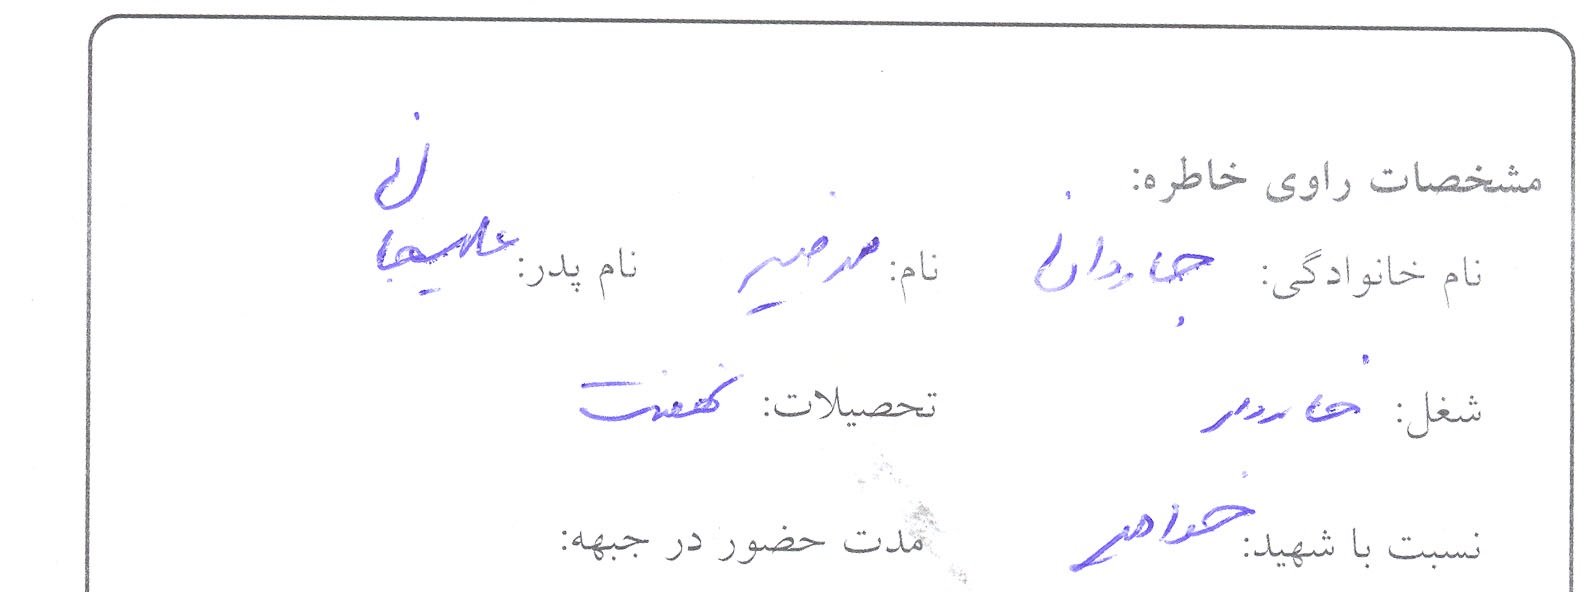 مشخصات راوی خاطره:
نام خانوادگی: جاودانی نام: مرضیه نام پدر: علیجان
شغل: خانه‌دار تحصیلات: نهضت
نسبت با شهید: خواهر مدت حضور در جبهه: